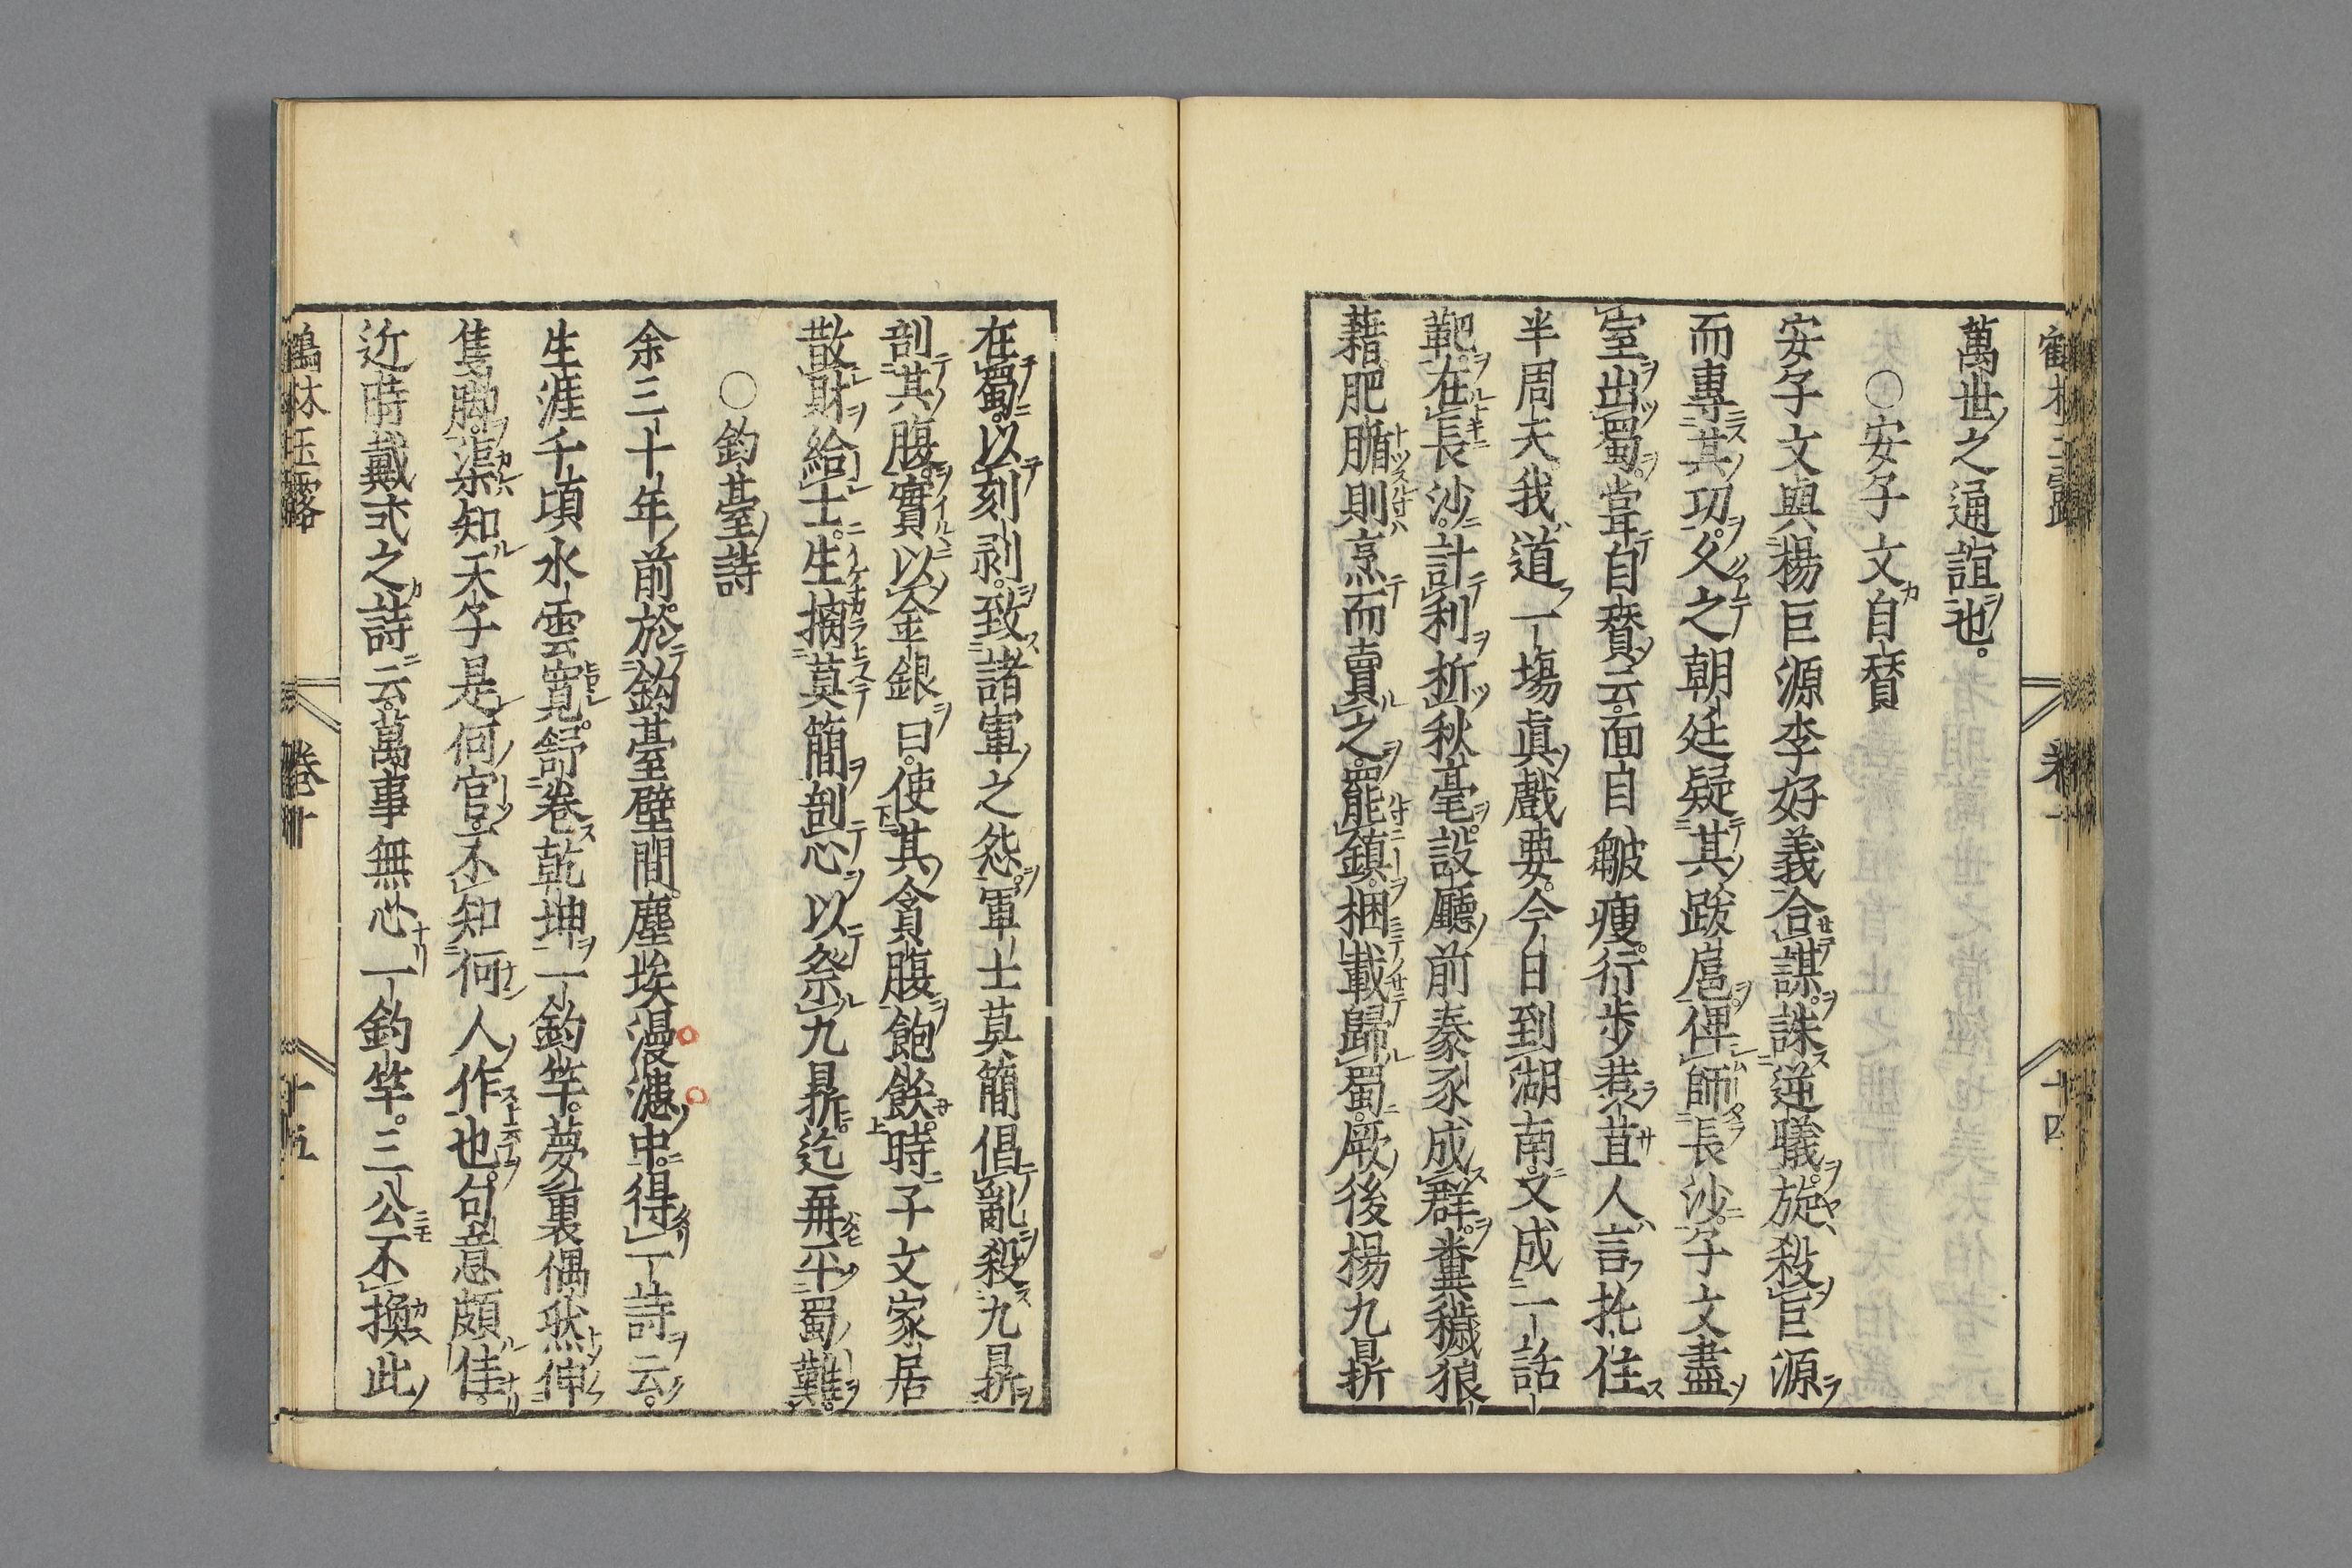 萬世之通誼也。
○安子文自賛
安子文與楊巨源李好義合謀。誅逆曦。旋殺巨源
而專其功。久之朝廷疑其跋扈。俾師長沙。子文盡
室出蜀。甞自賛云。面目皺瘦。行步萎苴。人言托住
半周天。我道一場眞戲耍。今日到湖南。又成一話
靶。在長沙。計利析秋毫。設廳前豢豕成群。糞穢狼
藉。肥腯則烹而賣之。罷鎮。梱載歸蜀。厥後楊九鼎
在蜀。以刻剥。致諸軍之怨。軍士莫簡倡亂。殺九鼎
剖其腹。實以金銀。曰。使其貪腹飽飫。時子文家居
散財給士。生擒莫簡剖心以祭九鼎。迄再平蜀難。
○釣臺詩
余三十年前。於釣臺壁間。塵埃漫漶中。得一詩云。
生涯千頃水雲寬。舒卷乾坤一釣竿。夢裏偶然伸
隻脚。渠知天子是何官。不知何人作也。句意頗佳。
近時戴式之詩云。萬事無心一釣竿。三公不換此
鶴林玉露
卷十
十五
十四